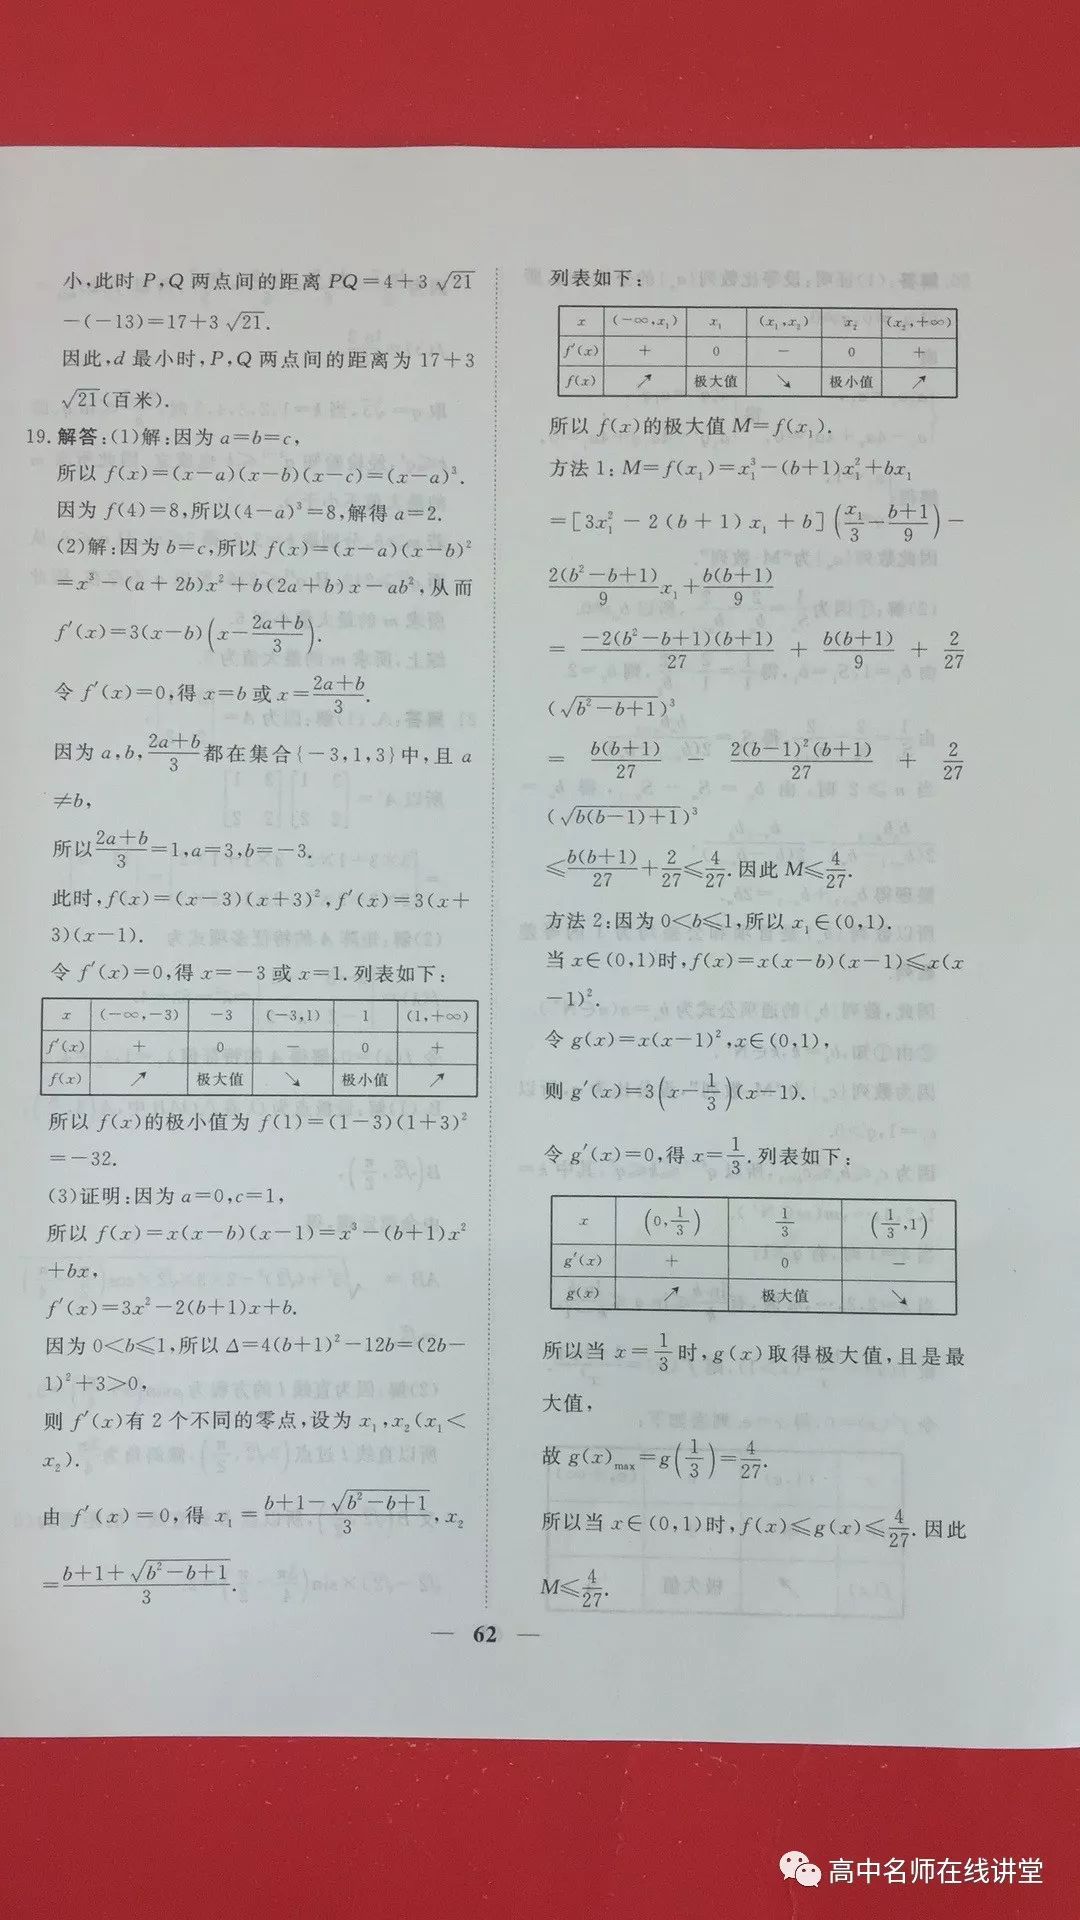 小,此时 P,Q 两点间的距离 PQ=4+3√21
-(-13)=17+3√21.
因此,d 最小时,P,Q 两点间的距离为 17+3
√21(百米).
19. 解答:(1)解:因为 a=b=c,
所以 f(x)=(x-a)(x-b)(x-c)=(x-a)³.
因为 f(4)=8,所以(4-a)³=8,解得 a=2.
(2)解:因为 b=c,所以 f(x)=(x-a)(x-b)²
=x³-(a+2b)x²+b(2a+b)x-ab²,从而
f′(x)=3(x-b)(x-(2a+b)/3).
令 f′(x)=0,得 x=b 或 x=(2a+b)/3.
因为 a,b,(2a+b)/3 都在集合{-3,1,3}中,且 a
≠b,
所以(2a+b)/3=1,a=3,b=-3.
此时,f(x)=(x-3)(x+3)²,f′(x)=3(x+
3)(x-1).
令 f′(x)=0,得 x=-3 或 x=1.列表如下:
x (-∞,-3) -3 (-3,1) 1 (1,+∞)
f′(x) + 0 - 0 +
f(x) ↗ 极大值 ↘ 极小值 ↗
所以 f(x)的极小值为 f(1)=(1-3)(1+3)²
=-32.
(3)证明:因为 a=0,c=1,
所以 f(x)=x(x-b)(x-1)=x³-(b+1)x²
+bx,
f′(x)=3x²-2(b+1)x+b.
因为 0<b≤1,所以 Δ=4(b+1)²-12b=(2b-
1)²+3>0,
则 f′(x)有 2 个不同的零点,设为 x₁,x₂(x₁<
x₂).
由 f′(x)=0,得 x₁=(b+1-√(b²-b+1))/3,x₂
=(b+1+√(b²-b+1))/3.
列表如下:
x (-∞,x₁) x₁ (x₁,x₂) x₂ (x₂,+∞)
f′(x) + 0 - 0 +
f(x) ↗ 极大值 ↘ 极小值 ↗
所以 f(x)的极大值 M=f(x₁).
方法 1:M=f(x₁)=x₁³-(b+1)x₁²+bx₁
=[3x₁²-2(b+1)x₁+b](x₁/3-(b+1)/9)-
2(b²-b+1)/9 x₁+b(b+1)/9
=-2(b²-b+1)(b+1)/27+b(b+1)/9+2/27
(√(b²-b+1))³
=b(b+1)/27-2(b-1)²(b+1)/27+2/27
(√(b(b-1)+1))³
≤b(b+1)/27+2/27≤4/27.因此 M≤4/27.
方法 2:因为 0<b≤1,所以 x₁∈(0,1).
当 x∈(0,1)时,f(x)=x(x-b)(x-1)≤x(x
-1)².
令 g(x)=x(x-1)²,x∈(0,1),
则 g′(x)=3(x-1/3)(x-1).
令 g′(x)=0,得 x=1/3.列表如下:
x (0,1/3) 1/3 (1/3,1)
g′(x) + 0 -
g(x) ↗ 极大值 ↘
所以当 x=1/3 时,g(x)取得极大值,且是最
大值,
故 g(x)max=g(1/3)=4/27.
所以当 x∈(0,1)时,f(x)≤g(x)≤4/27.因此
M≤4/27.
— 62 —
高中名师在线讲堂